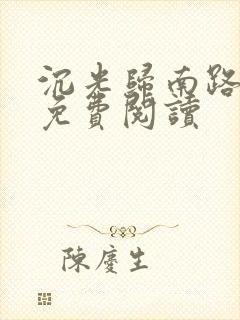 沉光歸南路
免費閱讀
陳慶生